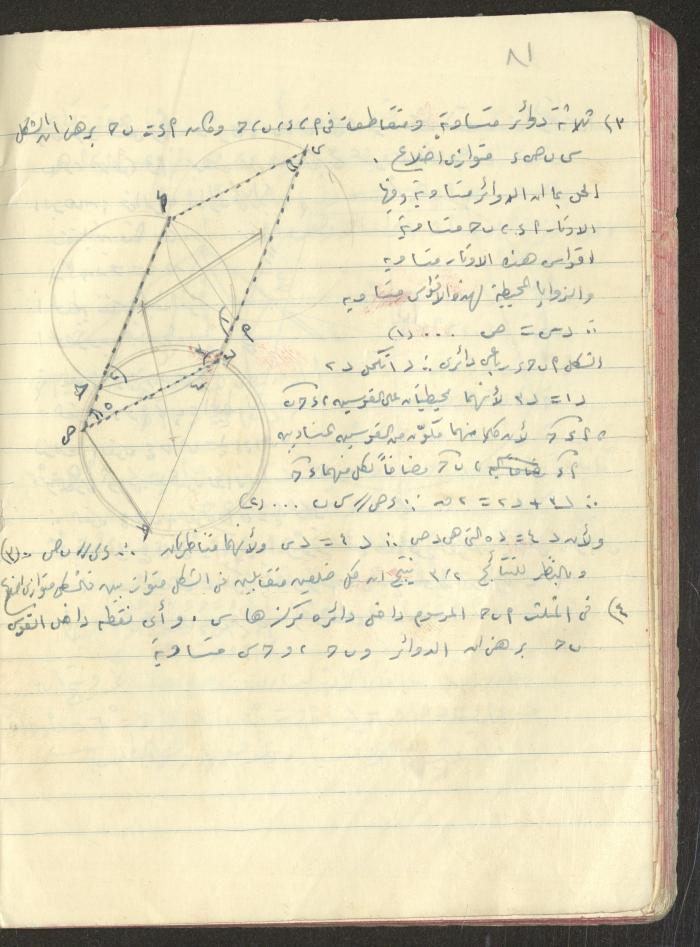 ٨١
٣) ثلاثة دوائر متساوية ومتقاطعة فى م ، ء ، ب ، ح وكان م ء = ب ح برهن أن الشكل
س ب ص ء متوازى أضلاع .
الحل بما أن الدوائر متساوية وفيها
الاوتار م ء ، ب ح متساوية
أقواس هذه الاوتار متساوية
والزوايا المحيطية لهذه الأقواس متساوية
∴ د س = ص . . . . (١)
الشكل م ب ح ء رباعى دائرى ∴ د ١ تكمل د ٢
د ١ = د ٣ لأنهما محيطيتان على القوسين م ء ح ب
، م ء ح لأن كلا منهما مكون من القوسين المتساويين
م ء ، ب ح مضافاً لكل منهما ء ح
∴ د ٣ + د ٢ = ٢ ق ∴ ء ص // س ب . . . (٢)
ولأن د ٤ = د ٥ التى هى د ص ∴ د ٤ = د س ولأنهما متناظرتان ∴ ء س // ب ص . . (٣)
وبالنظر للنتائج ٢ ، ٣ ينتج أن كل ضلعين متقابلين فى الشكل متوازيين فالشكل متوازى أضلاع
٤) فى المثلث م ب ح المرسوم داخل دائرة مركزها س ، و أى نقطة داخل القوس
ب ح برهن أن الدوائر و ب ح ، و ح س متساوية